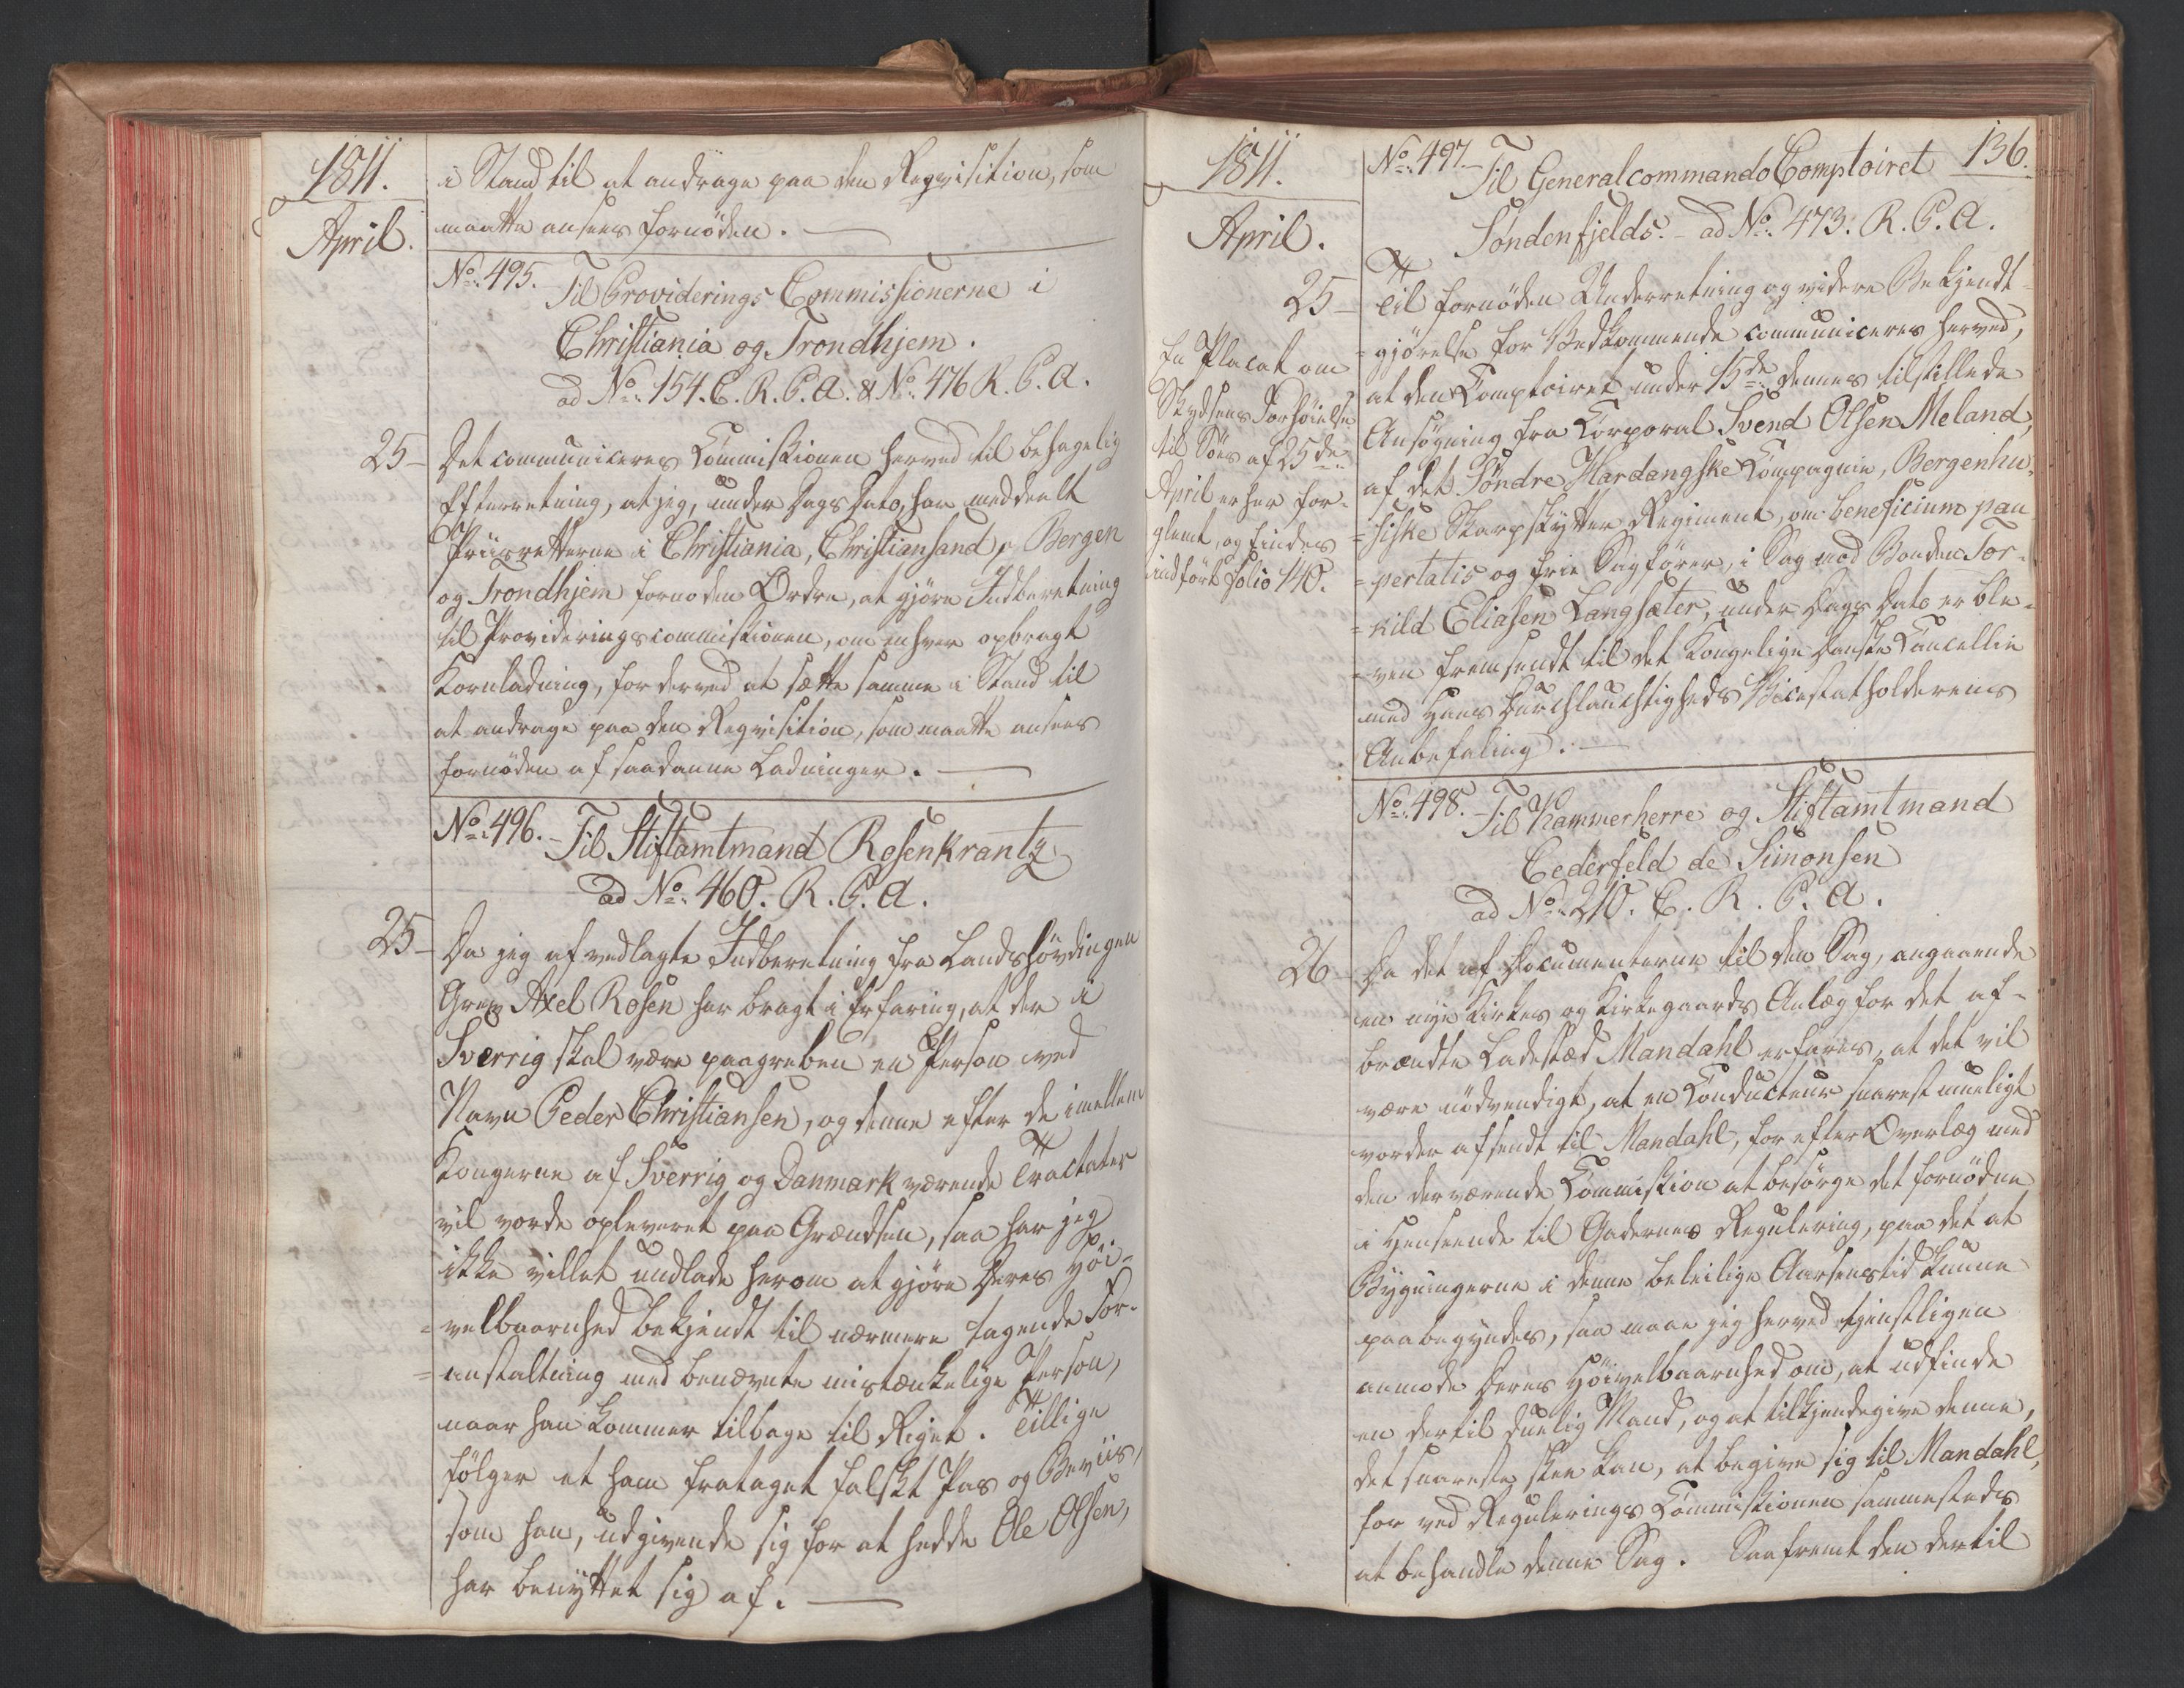 1811.
April.
i Stand til at andrage paa den Reqvisition, som
maatte ansees fornöden.
No. 495. Til Providerings Commissionerne i
Christiania og Trondhjem.
ad No. 154. C. R. P. A. & No. 476 R. P. A.
25 Det communiceres Commissionen herved til behagelig
Efterretning, at jeg, under Dags Dato, har meddeelt
Priisretterne i Christiania, Christiansand, Bergen
og Trondhjem fornøden Ordre, at gjöre Indberetning
til Provideringscommissionen, om enhver opbragt
Kornladning, for derved at sætte samme i Stand til
at andrage paa den Reqvisition, som maatte ansees
fornöden af saadanne Ladninger.
No. 496. Til Stiftamtmand Rosenkrantz
ad No. 460. R. P. A.
25 Da jeg af vedlagte Indberetning fra Landshövdingen
Grev Axel Rosen har bragt i Erfaring, at der i
Sverrig skal være paagreben en Person ved
Navn Peder Christiansen, og denne efter de imellem
Kongerne af Sverrig og Danmark værende Tractater
vil vorde opleveret paa Grændsen, saa har jeg
ikke villet undlade herom at gjöre Deres Höi-
=velbaarnhed bekjendt til nærmere tagende For-
=anstaltning med benævnte mistænkelige Person,
naar han kommer tilbage til Riget. Tillige
fölger et ham frataget falskt Pas og Beviis,
som han, udgivende sig for at hedde Ole Olsen,
har benÿttet sig af.
1811.
April.
136.
No. 497. Til Generalcommando Comptoiret
Söndenfjelds. - ad No. 473. R. P. A.
25 Til fornöden Underretning og videre Bekjendt-
=gjörelse for Vedkommende communiceres herved,
at den Comptoiret under 15de dennes tilstillede
Ansögning fra Corporal Svend Olsen Meland,
af det Söndre Hardangske Compagnie, Bergenhu-
=siske Skarpskÿtter Regiment, om beneficium pau
=pertatis og frie Sagförer, i Sag mod Bonden Tor-
=kild Eliasen Langsæter, under Dags Dato er ble-
=ven fremsendt til det Kongelige Danske Cancellie
med Hans Durchlauchtigheds Vicestatholderens
Anbefaling.
En Placat om
Skydsens Forhöielse
til Söes af 25de
April er her for-
glemt, og findes
indfört Folio 140.
No. 498. Til Kammerherre og Stiftamtmand
Cederfeld de Simonsen
ad No. 210. C. R. P. A.
26 Da det af Documenterne til den Sag, angaaende
en nye Kirkes og Kirkegaards Anlæg for det af-
brændte Ladested Mandahl erfares, at det vil
være nödvendigt, at en Conducteur snarest mueligt
vorder afsendt til Mandahl, for efter Overlæg med
den derværende Commission at besörge det fornödne
i Henseende til Gadernes Regulering, paa det at
Bygningerne i denne beleilige Aarsenstid kunne
paabegyndes, saa maae jeg herved tjenstligen
anmode Deres Höivelbaarnhed om, at udfinde
en dertil duelig Mand, og at tilkjendegive denne,
det snareste skee kan, at begive sig til Mandahl,
for ved Regulerings Commissionen sammesteds
at behandle denne Sag. Saafremt den dertil